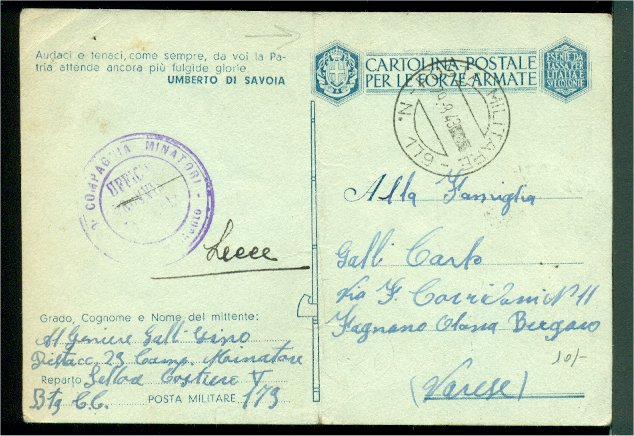 Audaci e tenaci, come sempre, da voi la Pa-
tria attende ancora più fulgide glorie.
UMBERTO DI SAVOIA
CARTOLINA POSTALE
PER LE FORZE ARMATE
ESENTE DA
TASSA PER
L'ITALIA E
COLONIE
MILITARE
N. 179
COMPAGNIA MINATORI
Lecce
Alla Famiglia
Galli Carlo
Via F. Corridoni N° 11
Fagnano Olona Bergoro
(Varese)
10/-
Grado, Cognome e Nome del mittente:
Geniere Galli Gino
Distacc. 23 Comp. Minatore
Reparto Costiero V
Btg C.C. POSTA MILITARE 173